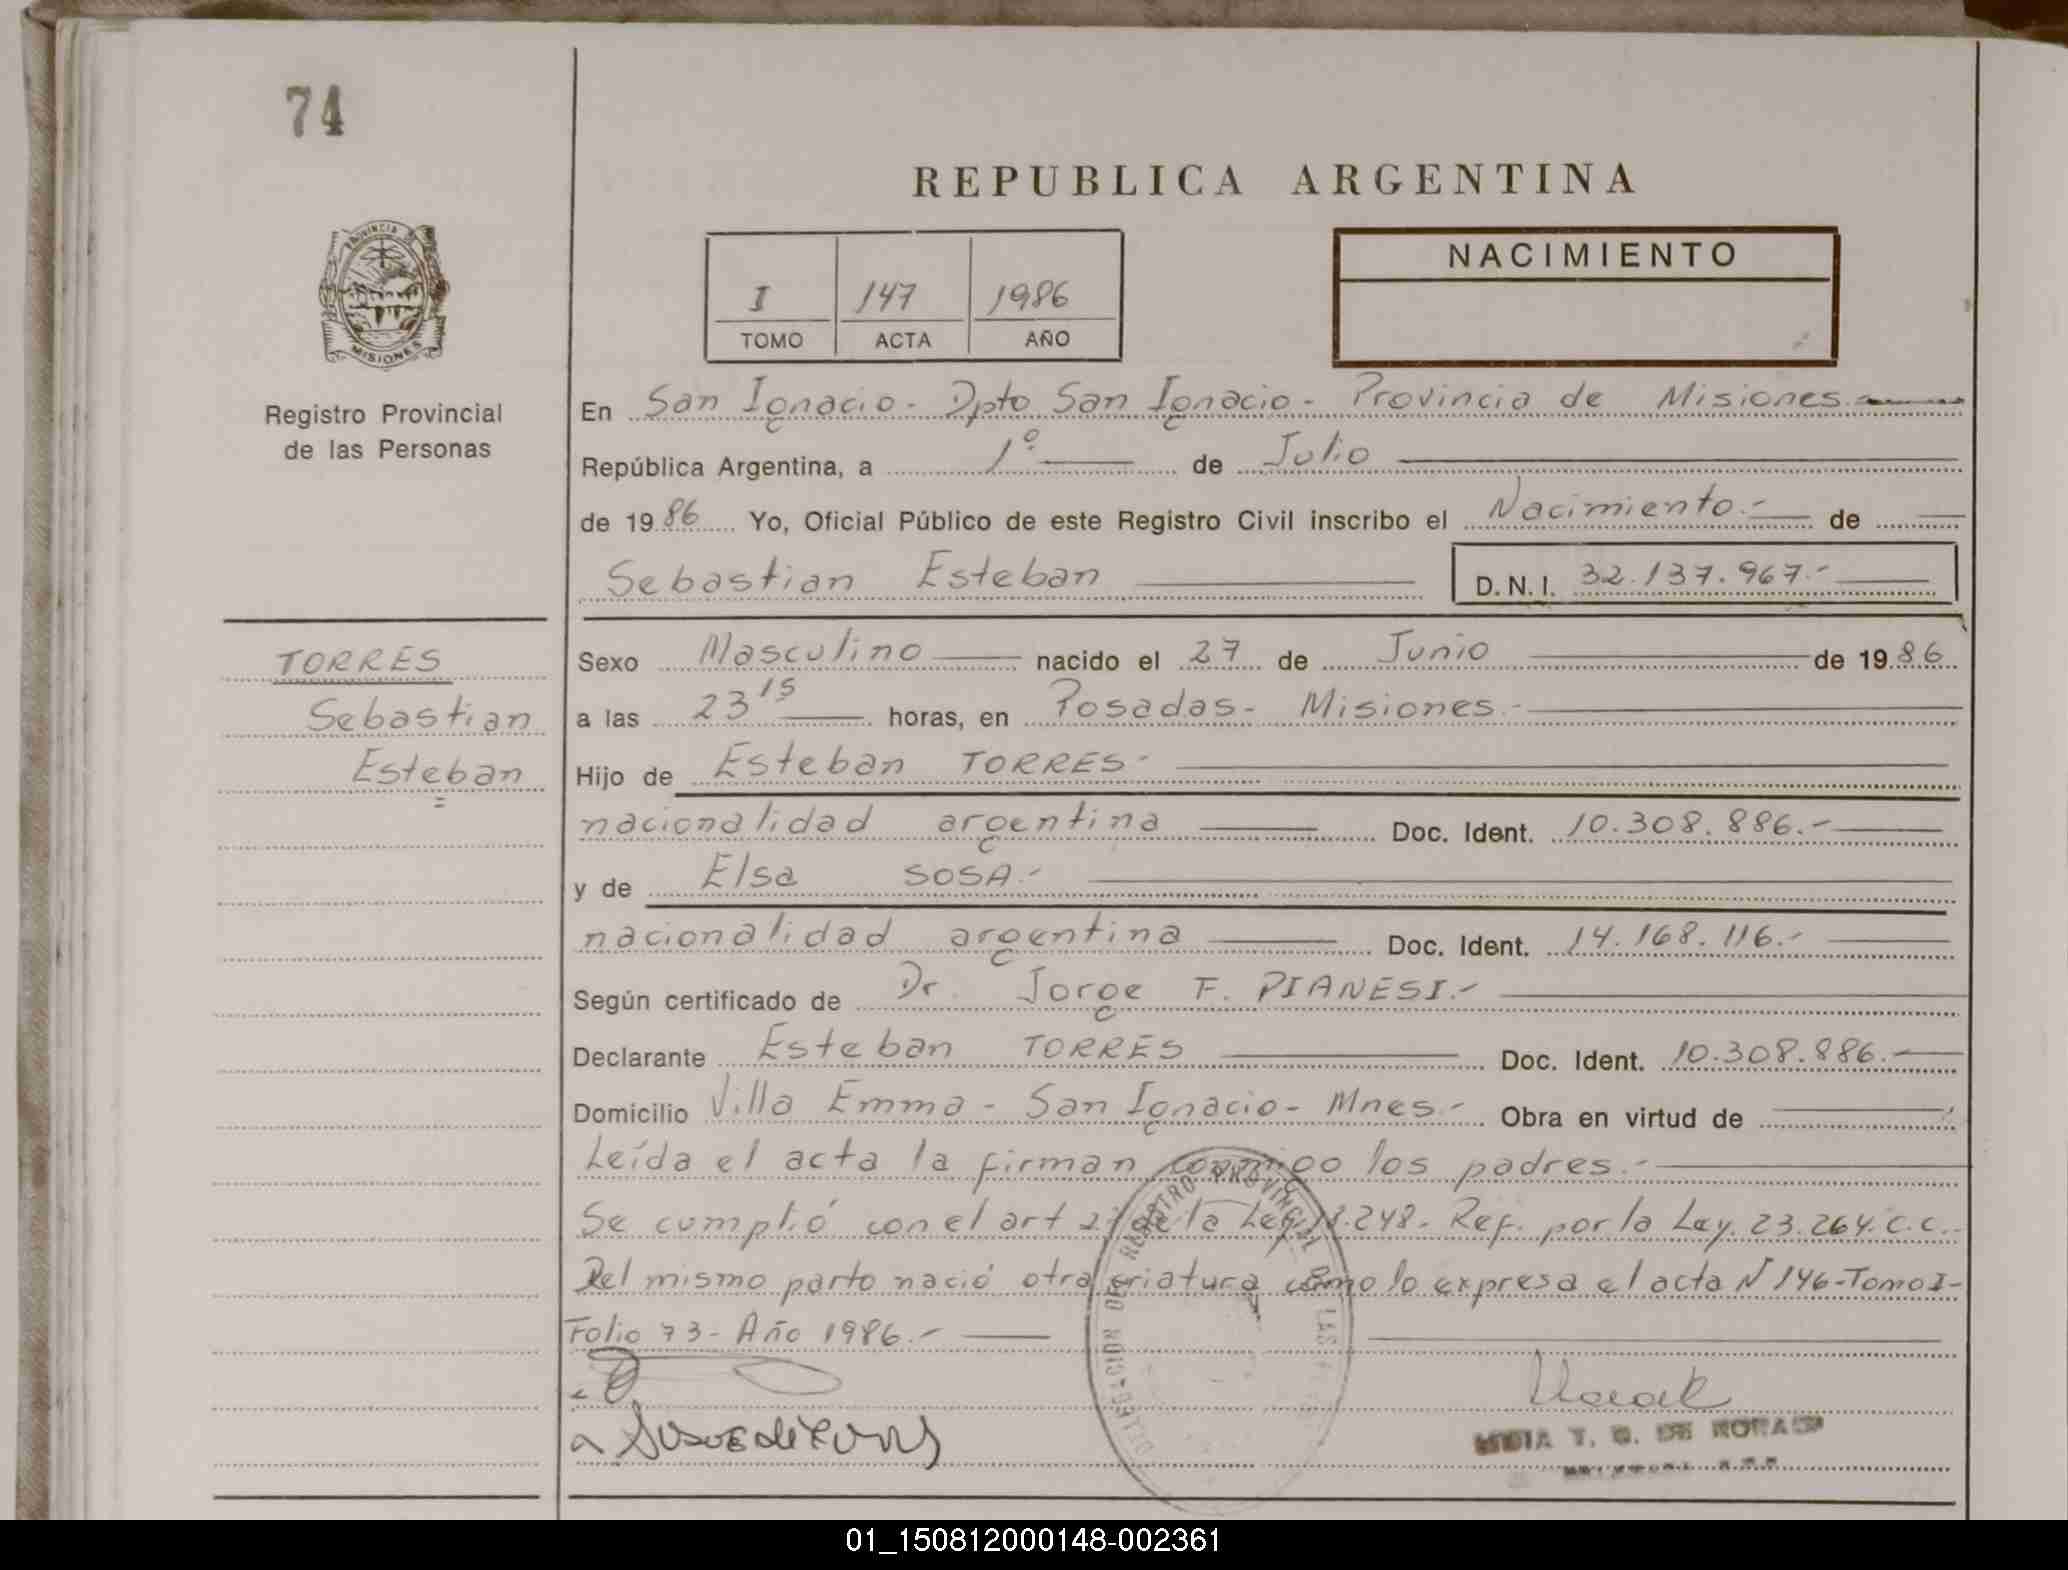 74
REPUBLICA ARGENTINA
PROVINCIA
MISIONES
Registro Provincial
de las Personas
I 147 1986
TOMO ACTA AÑO
NACIMIENTO
En San Ignacio - Dpto San Ignacio - Provincia de Misiones.-
República Argentina, a 1º de Julio
de 1986 Yo, Oficial Público de este Registro Civil inscribo el Nacimiento.- de
Sebastian Esteban D.N.I. 32.137.967.-
TORRES
Sebastian
Esteban
Sexo Masculino nacido el 27 de Junio de 1986
a las 23 15 horas, en Posadas- Misiones.-
Hijo de Esteban TORRES-
nacionalidad argentina Doc. Ident. 10.308.886.-
y de Elsa SOSA.-
nacionalidad argentina Doc. Ident. 14.168.116.-
Según certificado de Dr. Jorge F. PIANESI.-
Declarante Esteban TORRES Doc. Ident. 10.308.886.-
Domicilio Villa Emma - San Ignacio - Mnes.- Obra en virtud de
Leída el acta la firman conmigo los padres.-
Se cumplió con el art de la Ley 18.248- Ref. por la Ley. 23.264. C.C.-
Del mismo parto nació otra criatura como lo expresa el acta Nº 146-Tomo I-
Folio 73- Año 1986.-
REGISTRO PROVINCIAL DE LAS
DIRECCION DEL
T. G. DE
01_150812000148-002361